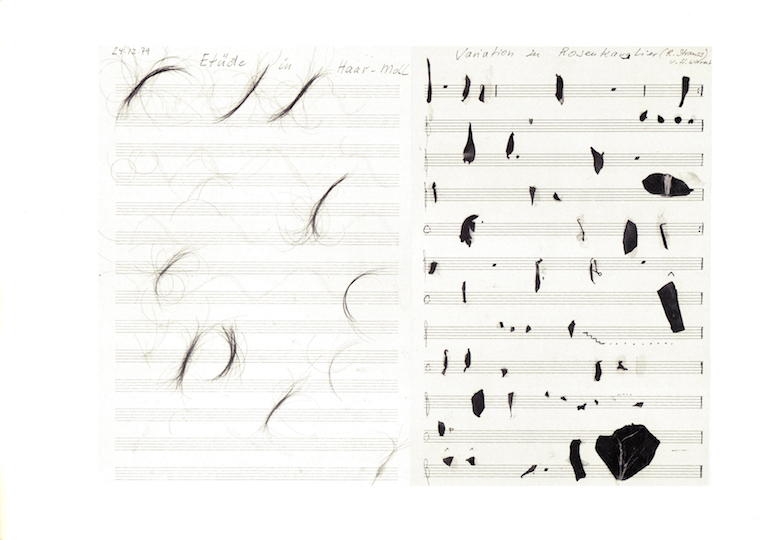 24.12.79
Etüde in Haar-Moll
Variation zu Rosenkavalier (R. Strauss)